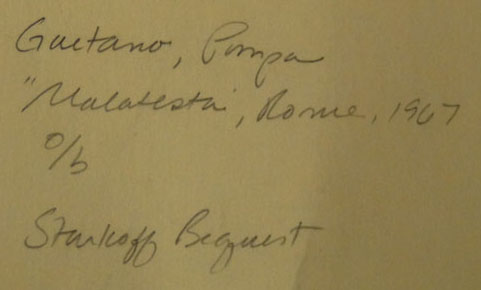 Gaetano, Pompa
"Malatesta", Rome, 1967
o/b
Starkoff Bequest